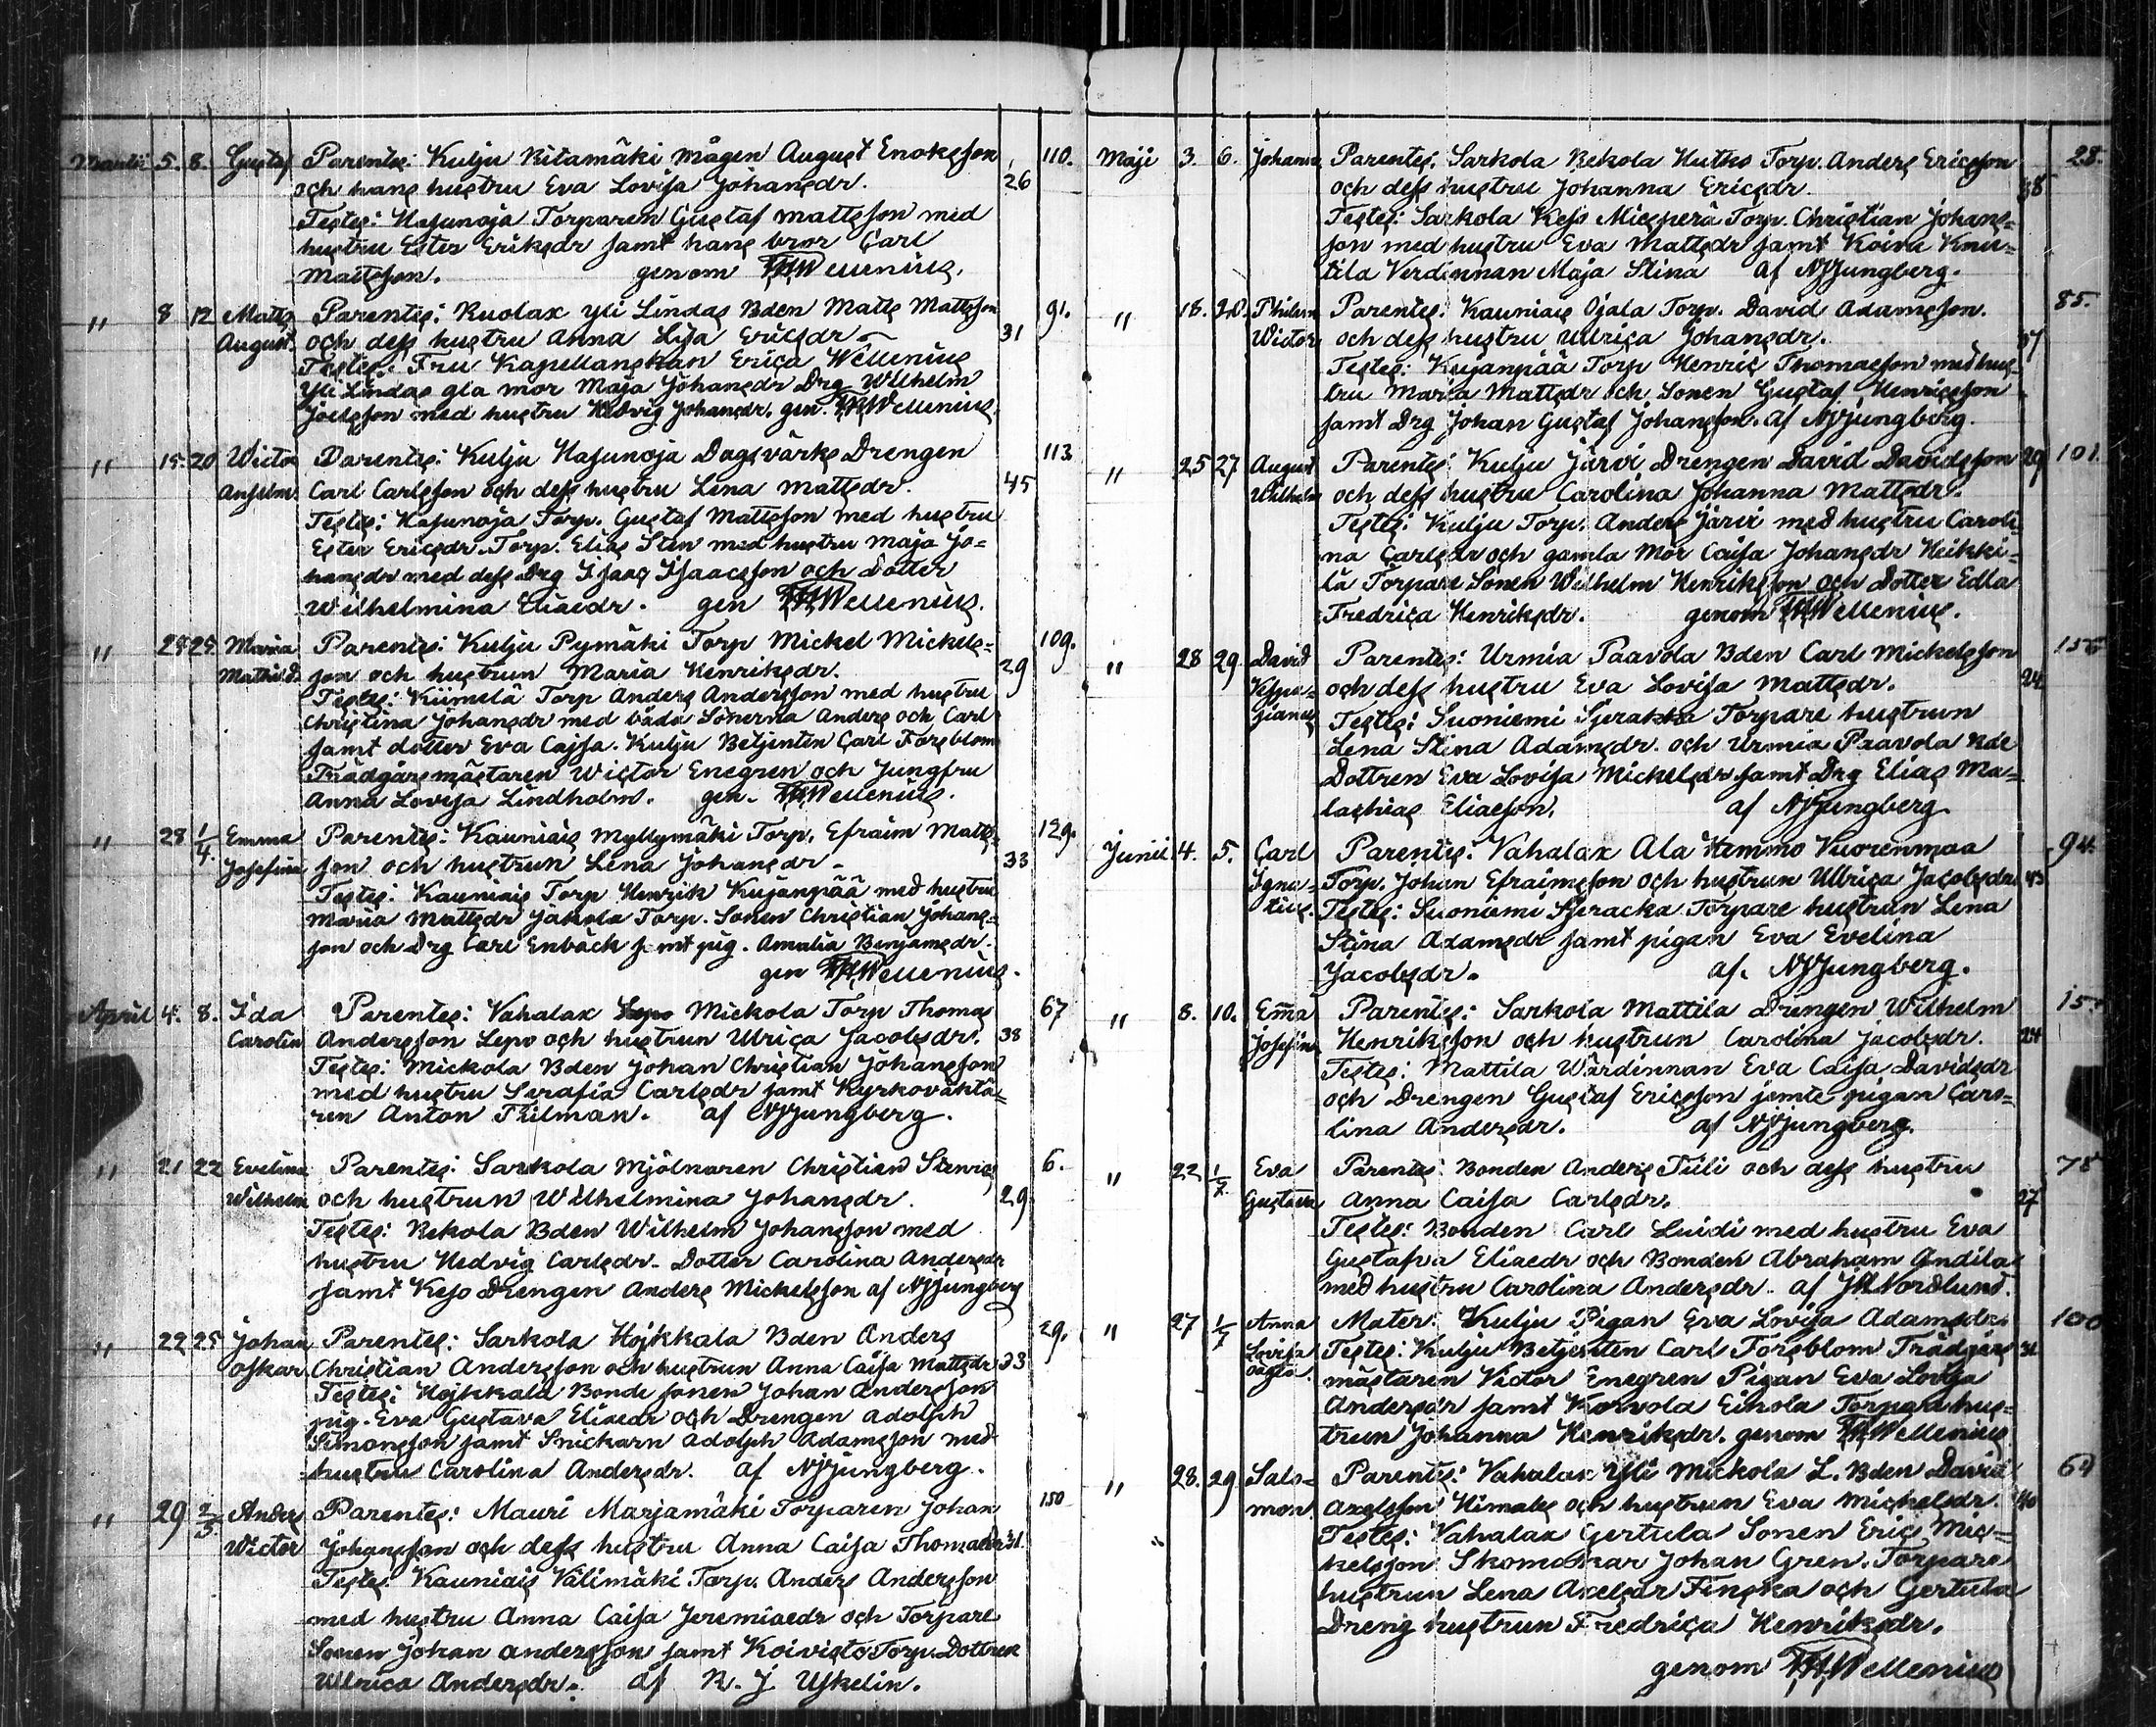 Martii 5. 8. Gustaf Parentes: Kulju Kitamäki mågen August Enoksson 110.
och hans hustru Eva Lovisa Johansdr. 26
Testes: Hasunoja Torparen Gustaf Mattsson med
hustru Ester Eriksdr samt hans bror Carl
Mattsson. genom Wellenius.
" 8 12 Matts Parentes: Kuolax Yli Lindas Bden Matts Mattsson 91.
August och dess hustru Anna Lisa Ericsdr 31
Testes: Fru Kapellanskan Erica Wellenius
Yli Lindas gla mor Maja Johansdr Drg Wilhelm
Joelsson med hustru Hedvig Johansdr. gen. Wellenius.
" 15 20 Wictor Parentes: Kulju Hasunoja Dagsvärks Drengen 113
Anselm Carl Carlsson och dess hustru Lena Mattsdr. 45
Testes: Hasunoja Torp. Gustaf Mattsson med hustru
Ester Ericsdr. Torp. Elias Sten med hustru Maja Jo=
hansdr med dess Drg Isaac Isaacsson och Dotter
Wilhelmina Eliaedr. gen Wellenius.
" 25. Maria Parentes: Kulju Pymäki Torp Mickel Mickels= 109.
Mathild. son och hustrun Maria Henriksdr. 29
Testes: Kiimelä Torp Anders Andersson med hustru
Christina Johansdr med båda Sönerna Anders och Carl
samt dotter Eva Cajsa. Kulju Betjenten Carl Forsblom
Trädgårsmästaren Wictor Enegren och Jungfru
Anna Lovisa Lindholm. gen. Wellenius.
" 28 1/4. Emma Parentes: Kauniais Myllymäki Torp. Efraim Matts= 129.
Josefina son och hustrun Lena Johansdr 33
Testes: Kauniais Torp Henrik Kujanpää med hustru
Maria Mattsdr Jakola Torp. Sonen Christian Johans=
son och Drg Carl Enbäck samt pig. Amalia Benjamsdr.
gen Wellenius.
April 4. 8. Ida Parentes: Vahalax Mickola Torp Thomas 67
Carolin Andersson Lepo och hustrun Ulrica Jacobsdr. 38
Testes: Mickola Bden Johan Christian Johansson
med hustru Serafia Carlsdr samt Kyrkoväktä=
ren Anton Thilman. af NJjungberg.
" 21 22 Evelina Parentes: Sarkola Mjölnaren Christian Stenroos 6.
Wilhelm och hustrun Wilhelmina Johansdr. 29
Testes: Rekola Bden Wilhelm Johansson med
hustru Hedvig Carlsdr. Dotter Carolina Andersdr
samt Keso Drengen Anders Mickelsson af NJjungberg
" 22 25 Johan Parentes: Sarkola Hojkkala Bden Anders 29.
Oskar Christian Andersson och hustrun Anna Caisa Mattsdr 33
Testes: Hojkkala Bonde sonen Johan Andersson
pig. Eva Gustava Eliaedr och Drengen Adolph
Simonsson samt Snickarn Adolph Adamsson med
hustru Carolina Andersdr. af NJjungberg.
" 29 2/5 Anders Parentes: Mauri Marjamäki Torparen Johan 150
Wictor Johansson och dess hustru Anna Caisa Thomaedr 31.
Testes: Kauniais Välimäki Torp. Anders Andersson
med hustru Anna Caisa Jeremiaedr och Torpare
Sonen Johan Andersson samt Koivisto Torp. Dottren
Ulrica Andersdr. af N. J. Uskelin.
Maji 3. 6. Johanna Parentes: Sarkola Rekola Hutko Torp. Anders Ericsson 28.
och dess hustru Johanna Ericsdr. 38
Testes: Sarkola Keso Miesperä Torp. Christian Johans=
son med hustru Eva Mattsdr samt Koivu Knu=
tila Verdinnan Maja Stina af NJjungberg.
" 18. 20. Wictor Parentes: Kauniais Ojala Torp. David Adamsson. 85.
och dess hustru Ullrica Johansdr. 37
Testes: Kujanpää Torp Henric Thomaesson med hus=
tru Maria Mattsdr och Sonen Gustaf Henricsson
samt Drg Johan Gustaf Johansson. af NJjungberg.
" 25 27. August Parentes: Kulju Järvi Drengen David Davidsson 29 101.
Wilhelm och dess hustru Carolina Johanna Mattsdr.
Testes: Kulju Torp. Anders Järvi med hustru Caroli=
na Carlsdr och gamla Mor Caisa Johansdr Heikki=
lä Torpare Sonen Wilhelm Henriksson och Dotter Edla
Fredrica Henriksdr. genom Wellenius.
" 28 29. David Parentes: Urmia Paavola Bden Carl Mickelsson
Vespa= och dess hustru Eva Lovisa Mattsdr. 24
sianus Testes: Suoniemi Sjerakka Torpare hustrun
Lena Stina Adamsdr. och Urmia Paavola Bde
Dottren Eva Lovisa Mickelsdr samt Drg Elias Ma=
lachias Eliaeson. af NJjungberg
Junii 4. 5. Carl Parentes: Vahalax Ala Hemmo Vuorenmaa 94.
Igna= Torp. Johan Efraimsson och hustrun Ullrica Jacobsdr 43
tius. Testes: Suoniemi Sjeracka Torpare hustrun Lena
Stina Adamsdr samt pigan Eva Evelina
Jacobsdr. af. NJjungberg.
" 8. 10. Em̄a Parentes: Sarkola Mattila Drengen Wilhelm
Josefina Henriksson och hustrun Carolina Jacobsdr. 24
Testes: Mattila Wärdinnan Eva Caisa Davidsdr
och Drengen Gustaf Ericsson jemte pigan Caro=
lina Andersdr. af NJjungberg.
" 22 1/7. Eva Parentes: Bonden Anders Tiili och dess hustru
Gustava Anna Caisa Carlsdr. 27
Testes: Bonden Carl Luidi med hustru Eva
Gustafva Eliaedr och Bonden Abraham Andila
med hustru Carolina Andersdr. af Nordlund.
" 27 1/7 Anna Mater: Kulju Pigan Eva Lovisa Adamsdr. 100
Lovisa Testes: Kulju Betjenten Carl Forsblom Trädgårs
oägta. mästaren Victor Enegren Pigan Eva Lovisa
Andersdr samt Korvola Eihola Torpare hus=
trun Johanna Henriksdr. genom Wellenius
" 28. 29. Salo= Parentes: Vahalax Yli Mickola L. Bden David
mon. Axelsson Himaks och hustrun Eva Michelsdr. 40
Testes: Vahalax Gertula Sonen Eric Mic=
kelsson Skomakar Johan Gren. Torpare
hustrun Lena Axelsdr Finska och Gertula
Dreng hustrun Fredrica Henriksdr.
genom Wellenius